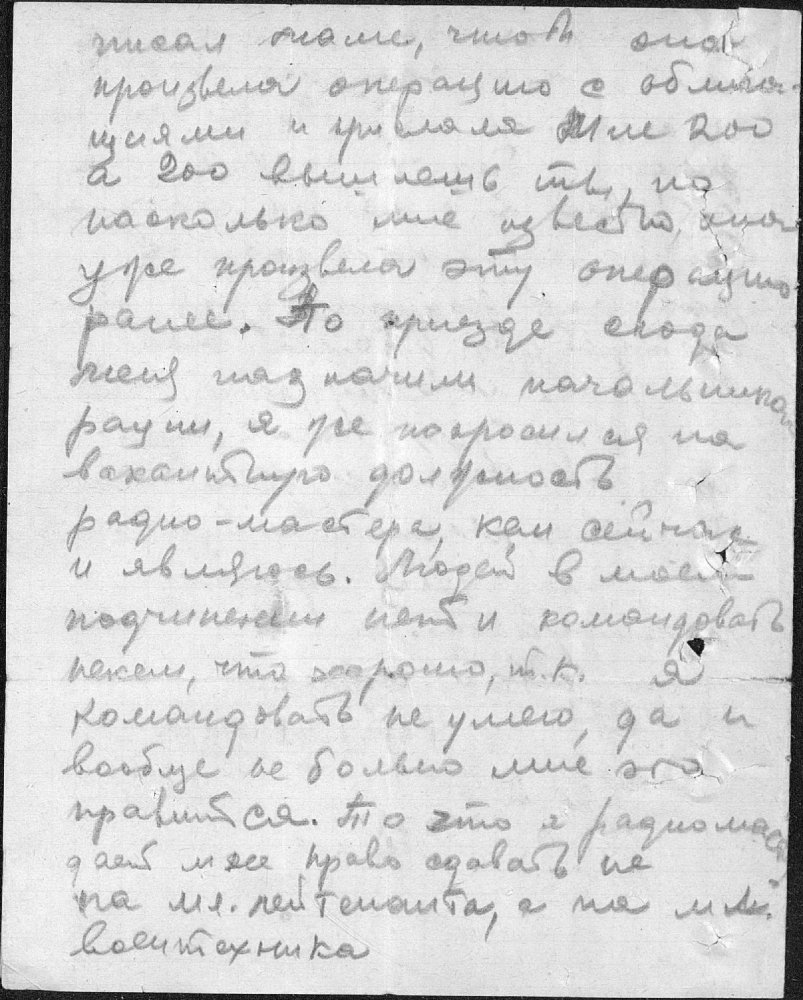 писал маме, чтоб она
произвела операцию с облига-
циями и прислала мне 200
а 200 вышлешь ты, но
насколько мне известно, она
уже произвела эту операцию
ранее. По приезде сюда
меня назначили начальником
рации, я же попросился на
вакантную должность
радио-мастера, кем сейчас
и являюсь. Людей в моем
подчинении нет и командовать
некем, что хорошо, т.к. я
командовать не умею, да и
вообще не больно мне это
нравится. То что я радиомаст
дает мне право сдавать не
на мл. лейтенанта, а на мл.
воентехника